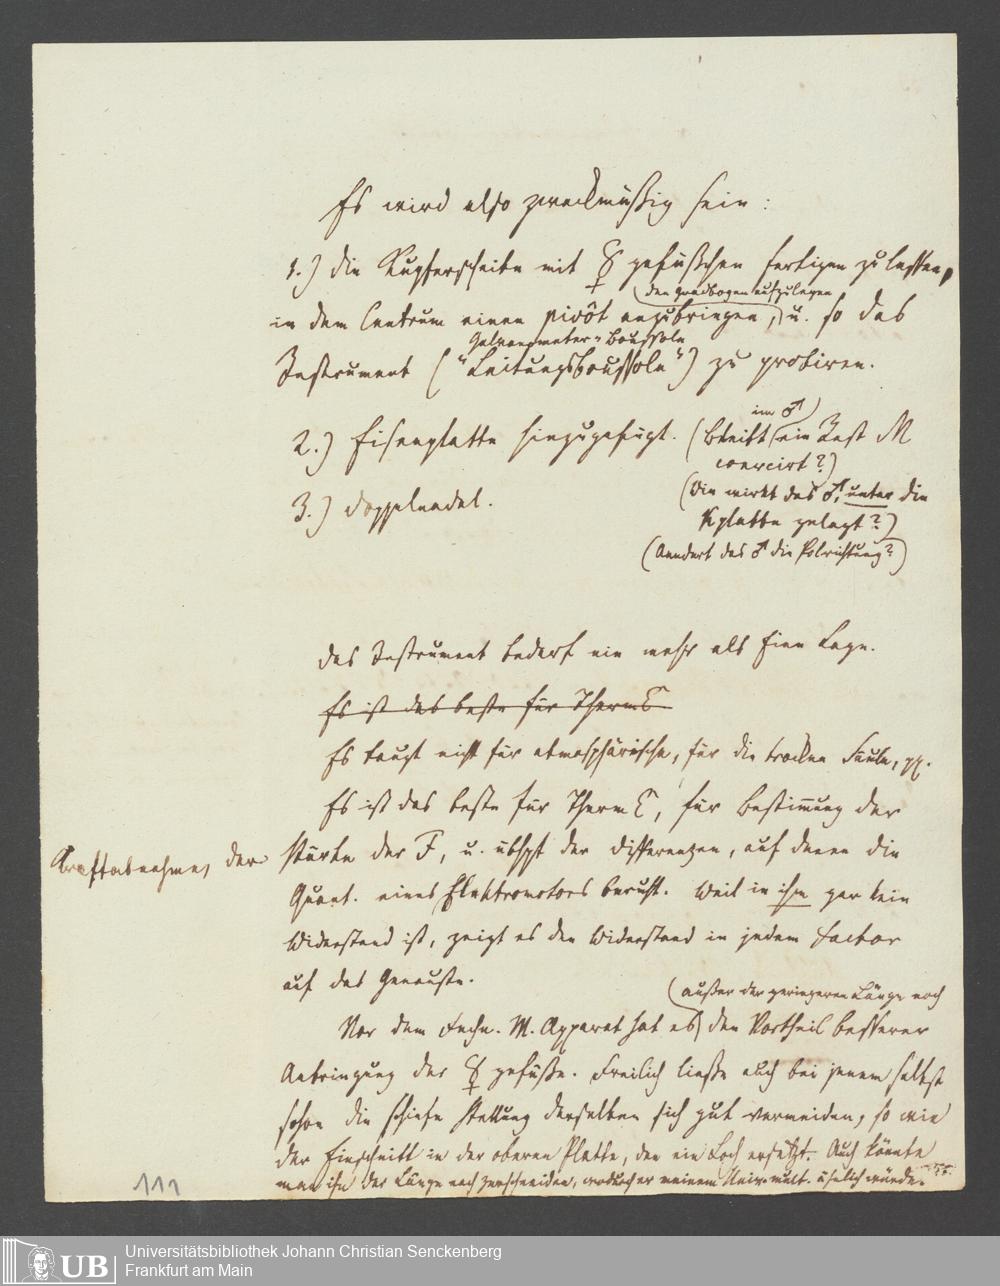 Es wird also zweckmäßig sein:
1.) die Kupferscheibe mit ☿ gefäßchen fertigen zu lassen,
den Gradbogen aufzulegen
in dem Centrum einen pivôt anzubringen, u. so das
Galvanometer-Boussole
Instrument ("Leitungsboussole") zu probiren.
im ♂
2.) Eisenplatte hinzugefügt. (bleibt ein Rest M
coercirt?)
(Wie wirkt das ♂, unter die
Kplatte gelegt?)
3.) Doppelnadel.
(Aendert das ♂ die Polrichtung?)
Das Instrument bedarf nie mehr als Eine Lage.
Es ist das beste für Therm
Es taugt nicht für atmosphärische, für die trockne Säule, pp.
Es ist das beste für Therm , für Bestimmung der
Kraftabnahme, der
Stärke der F, u. übhpt der Differenzen, auf denen die
Quant. eines Elektromotors beruht. Weil in ihm gar kein
Widerstand ist, zeigt es den Widerstand in jedem Factor
auf das Genauste.
(außer der geringeren Länge noch
Vor dem Fechn. M. Apparat hat es) den Vortheil besserer
Anbringung der ☿ gefäße. Freilich ließe auch bei jenem selbst
schon die schiefe Stellung derselben sich gut vermeiden, so wie
der Einschnitt in der oberen Platte, den ein Loch ersetzt. Auch könnte
man ihn der Länge nach zerschneiden, wodurch er meinem Univ. mult. ähnlich würde.
111
UB
Universitätsbibliothek Johann Christian Senckenberg
Frankfurt am Main